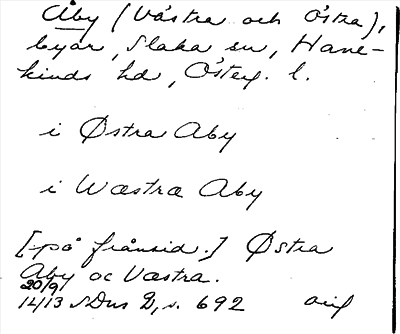 Åby (Västra och Östra),
byar, Slaka sn, Hane-
kinds hd, Östeg. l.
i Østra Aby
i Wæstræ Aby
[på frånsid.] Østra
Aby oc Væstra.
20/9
1413 SDns 2, s. 692 orig